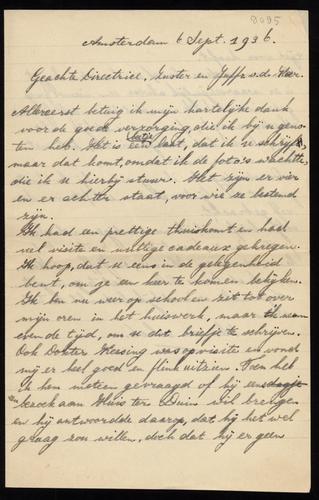 8095
Amsterdam 6 Sept. 1936.
Geachte Directrice, Zuster en Juffr. v.de Veer.
Allereerst betuig ik mijn hartelijke dank
voor de goede verzorging, die ik bij u geno-
ten heb. Het is een beetje laat, dat ik u schrijf,
maar dat komt, omdat ik de foto's wachtte,
die ik u hierbij stuur. Het zijn er vier
en er achter staat, voor wie ze bestemd
zijn.
Ik had een prettige thuiskomst en had
veel visite en nuttige cadeaux gekregen.
Ik hoop, dat u eens in de gelegenheid
bent, om ze en hier te komen bekijken.
Ik ben nu weer op school en zit tot over
mijn oren in het huiswerk, maar ik nam
even de tijd, om u dit briefje te schrijven.
Ook Dokter Hessing was op visite en vond
mij er heel goed en flink uitzien. Toen heb
ik hem meteen gevraagd of hij
een bezoek aan Huis ter Duin wil brengen
en hij antwoordde daarop, dat hij het wel
graag zou willen, doch dat hij er geen